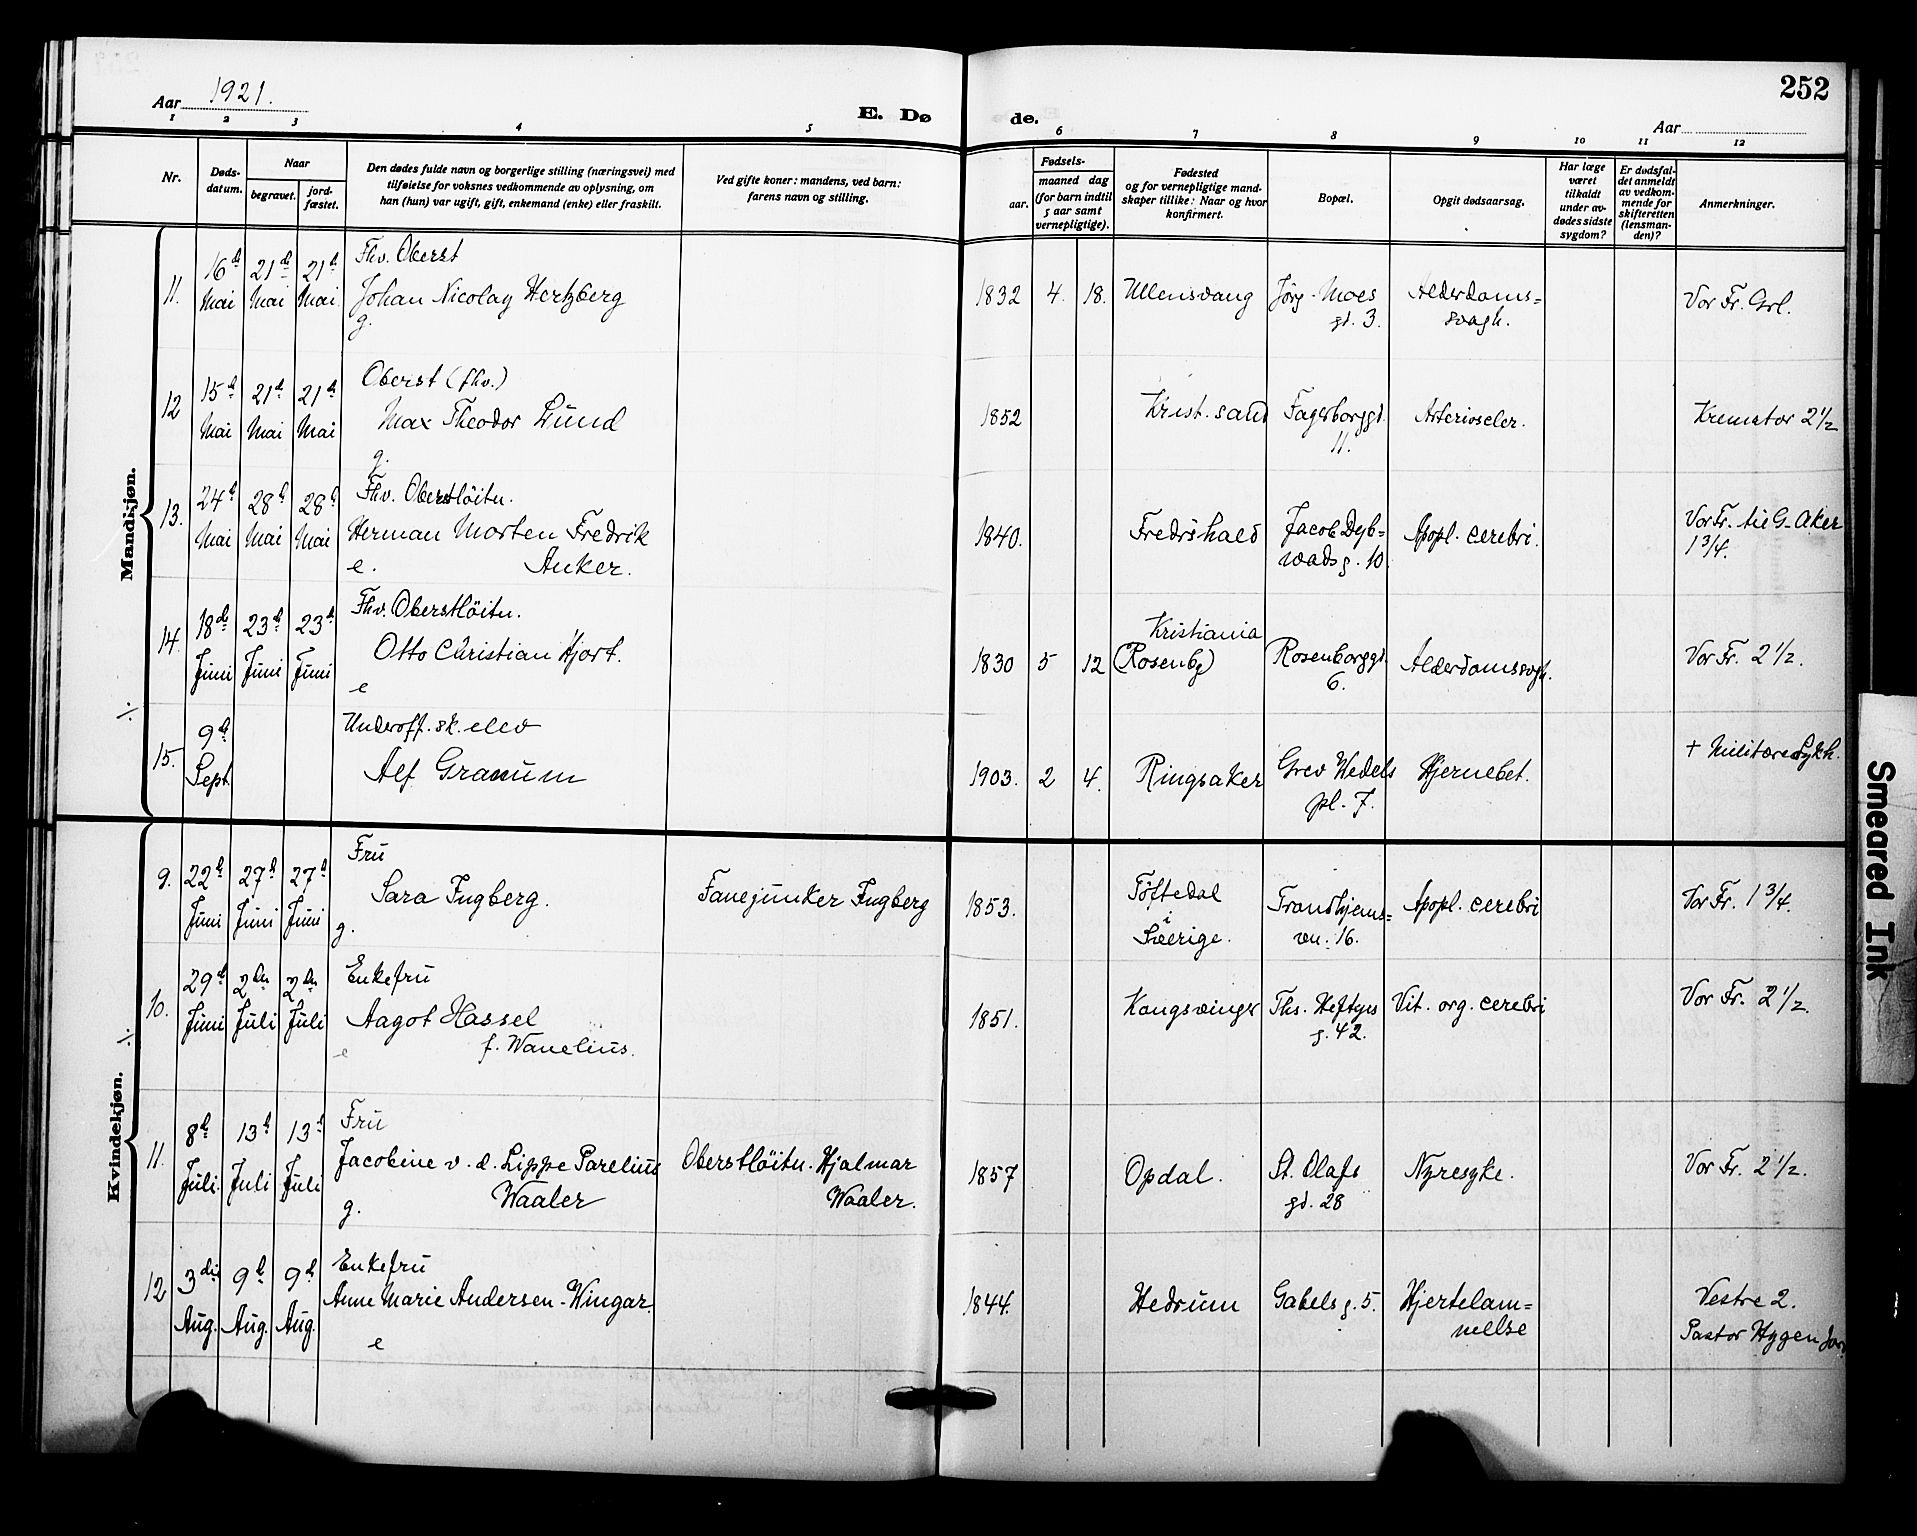 252
Aar 1921.
E. Dø de.
Aar
1 2 3 4 5 6 7 8 9 10 11 12
Nr.
Døds-
datum.
Naar
begravet.
jord-
fæstet.
Den dødes fulde navn og borgerlige stilling (næringsvei) med
tilføielse for voksnes vedkommende av oplysning, om
han (hun) var ugift, gift, enkemand (enke) eller fraskilt.
Ved gifte koner: mandens, ved barn:
farens navn og stilling.
Fødsels-
aar.
maaned dag
(for barn indtil
5 aar samt
vernepligtige).
Fødested
og for vernepligtige mand-
skaper tillike: Naar og hvor
konfirmert.
Bopæl.
Opgit dødsaarsag.
Har læge
været
tilkaldt
under av-
dødes sidste
sygdom?
Er dødsfal-
det anmeldt
av vedkom-
mende for
skifteretten
(lensman-
den)?
Anmerkninger.
Mandkjøn.
11. 16d Mai 21d Mai 21d Mai
Fhv. Oberst
Johan Nicolay Hertzberg
g.
1832 4. 18. Ullensvang
Jörg. Moes
gd. 3.
Alderdoms-
svagh.
Vor Fr. Grl.
12 15d Mai 21d Mai 21d Mai
Oberst (fhv.)
Max Theodor Lund
g.
1852 Krist.sand
Fagerborggd.
11.
Arterioscler.
Kremator 2 1/2
13. 24d Mai 28d Mai 28d Mai
Fhv. Oberstlöitn.
Herman Morten Fredrik
e. Anker.
1840. Fredrshald
Jacob Dyb-
wads g. 10.
Apopl. cerebri.
Vor Fr. til G. Aker
1 3/4.
14. 18de Juni 23d Juni 23d Juni
Fhv. Oberstlöitn.
Otto Christian Hjort.
e
1830 5 12
Kristiania
(Rosenbg)
Rosenborggd.
6.
Alderdomssvgh.
Vor Fr. 2 1/2.
÷
15. 9d Sept.
Underoff.sk.elev
Alf Granum
1903. 2 4. Ringsaker
Grev Wedels
pl. 7.
Hjernebet.
† Militære Sykh.
Kvindekjøn.
9. 22d Juni 27d Juni 27d Juni
Fru
Sara Ingberg.
g.
Fanejunker Ingberg
1853.
Töftedal
i
Sverige.
Trondhjems-
vn. 16.
Apopl. cerebri
Vor Fr. 1 3/4.
10. 29d Juni 2den Juli 2den Juli
Enkefru
Aagot Hassel
e f. Wanelius.
÷
1851. Kongsvinger
Ths. Heftyes
g. 42.
Vit. org. cerebri
Vor Fr. 2 1/2.
11. 8d Juli. 13d Juli 13d Juli
Fru
Jacobine v. d. Lippe Parelius
g. Waaler
Oberstlöitn. Hjalmar
Waaler.
1857 Opdal.
St. Olafs
gd. 28
Nyresyke.
Vor Fr. 2 1/2.
12 3die Aug. 9d Aug. 9d Aug.
Enkefru
Anne Marie Andersen-Wingar
e
1844. Hedrum
Gabels g. 5.
Hjertelam-
melse
Vestre 2.
Pastor Hygen
Smeared Ink